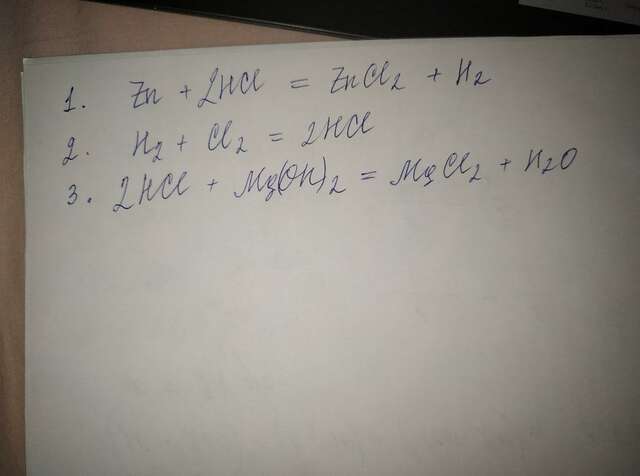 1. Zn + 2HCl = ZnCl₂ + H₂
2. H₂ + Cl₂ = 2HCl
3. 2HCl + Mg(OH)₂ = MgCl₂ + H₂O